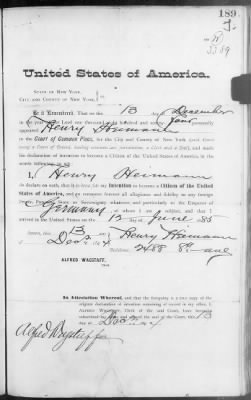 189
J.
R
3389
United States of America.
STATE OF NEW YORK,
CITY AND COUNTY OF NEW YORK,
Be it Remembered, That on the 13 day of December
in the year of our Lord one thousand eight hundred and ninety four personally
appeared Henry Heimann
in the Court of Common Pleas, for the City and County of New York
and made
his declaration of intention to become a Citizen of the United States of America, in the
words following
I, Henry Heimann
do declare on oath, that it is bona fide my Intention to become a Citizen of the United
States of America, and to renounce forever all allegiance and fidelity to any foreign
Prince, Potentate, State or Sovereignty whatever, and particularly to the Emperor of
Germany of whom I am a subject, and that I
arrived in the United States on the 13 day of June 188
Sworn, this 13
Dec 4 Henry Heimann
Residence, 2488 8th ave
ALFRED WAGSTAFF,
In Attestation Whereof, and that the foregoing is a true copy of the
original declaration of intention remaining of record in my office, I,
ALFRED WAGSTAFF, Clerk of the said Court, have hereunto
subscribed my name and affixed the seal of the Court, this 13
day of Dec 4
Alfred Wagstaff